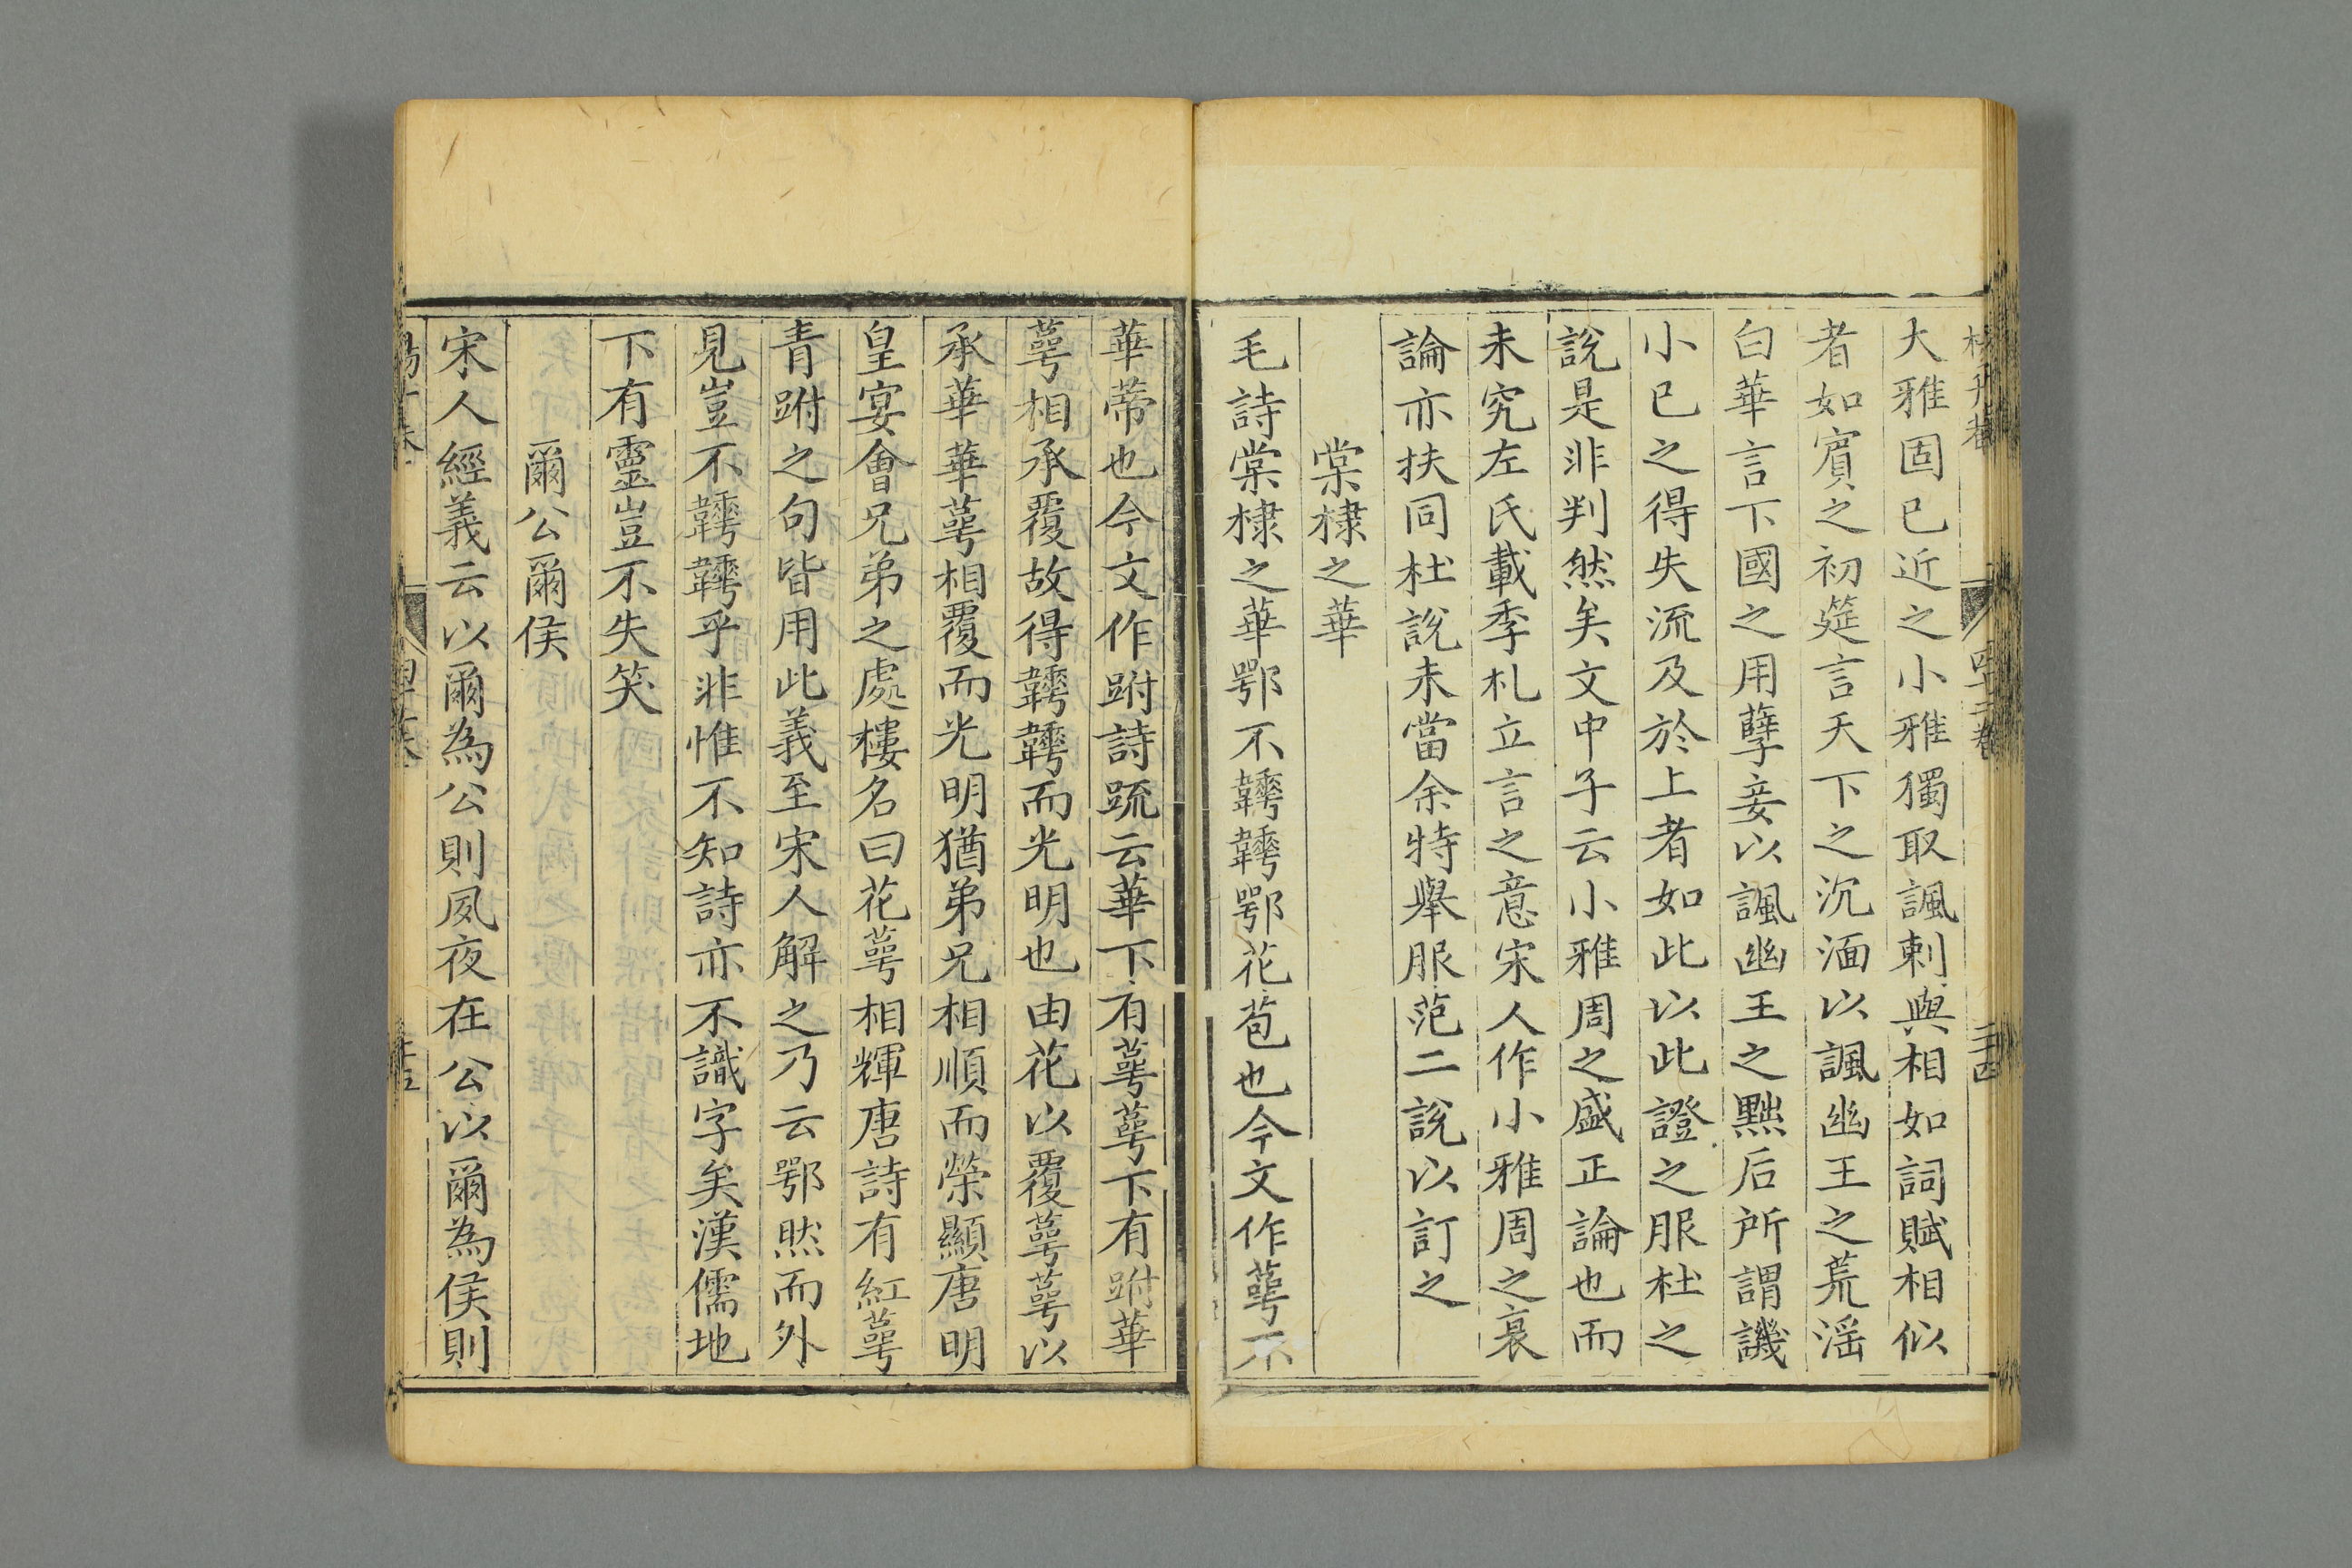 大雅固已近之小雅獨取諷刺與相如詞賦相似
者如賓之初筵言天下之沉湎以諷幽王之荒滛
白華言下國之用孽妾以諷幽王之黜后所謂譏
小已之得失流及於上者如此以此證之服杜之
說是非判然矣文中子云小雅周之盛正論也而
未究左氏載季札立言之意宋人作小雅周之衰
論亦扶同杜說未當余特舉服范二說以訂之
棠棣之華
毛詩棠棣之華鄂不韡韡鄂花苞也今文作萼不
華蒂也今文作跗詩疏云華下有萼萼下有跗華
萼相承覆故得韡韡而光明也由花以覆萼萼以
承華華萼相覆而光明猶弟兄相順而榮顯唐明
皇宴會兄弟之處樓名曰花萼相輝唐詩有紅萼
青跗之句皆用此義至宋人解之乃云鄂然而外
見豈不韡韡乎非惟不知詩亦不識字矣漢儒地
下有靈豈不失笑
爾公爾侯
宋人經義云以爾為公則夙夜在公以爾為侯則